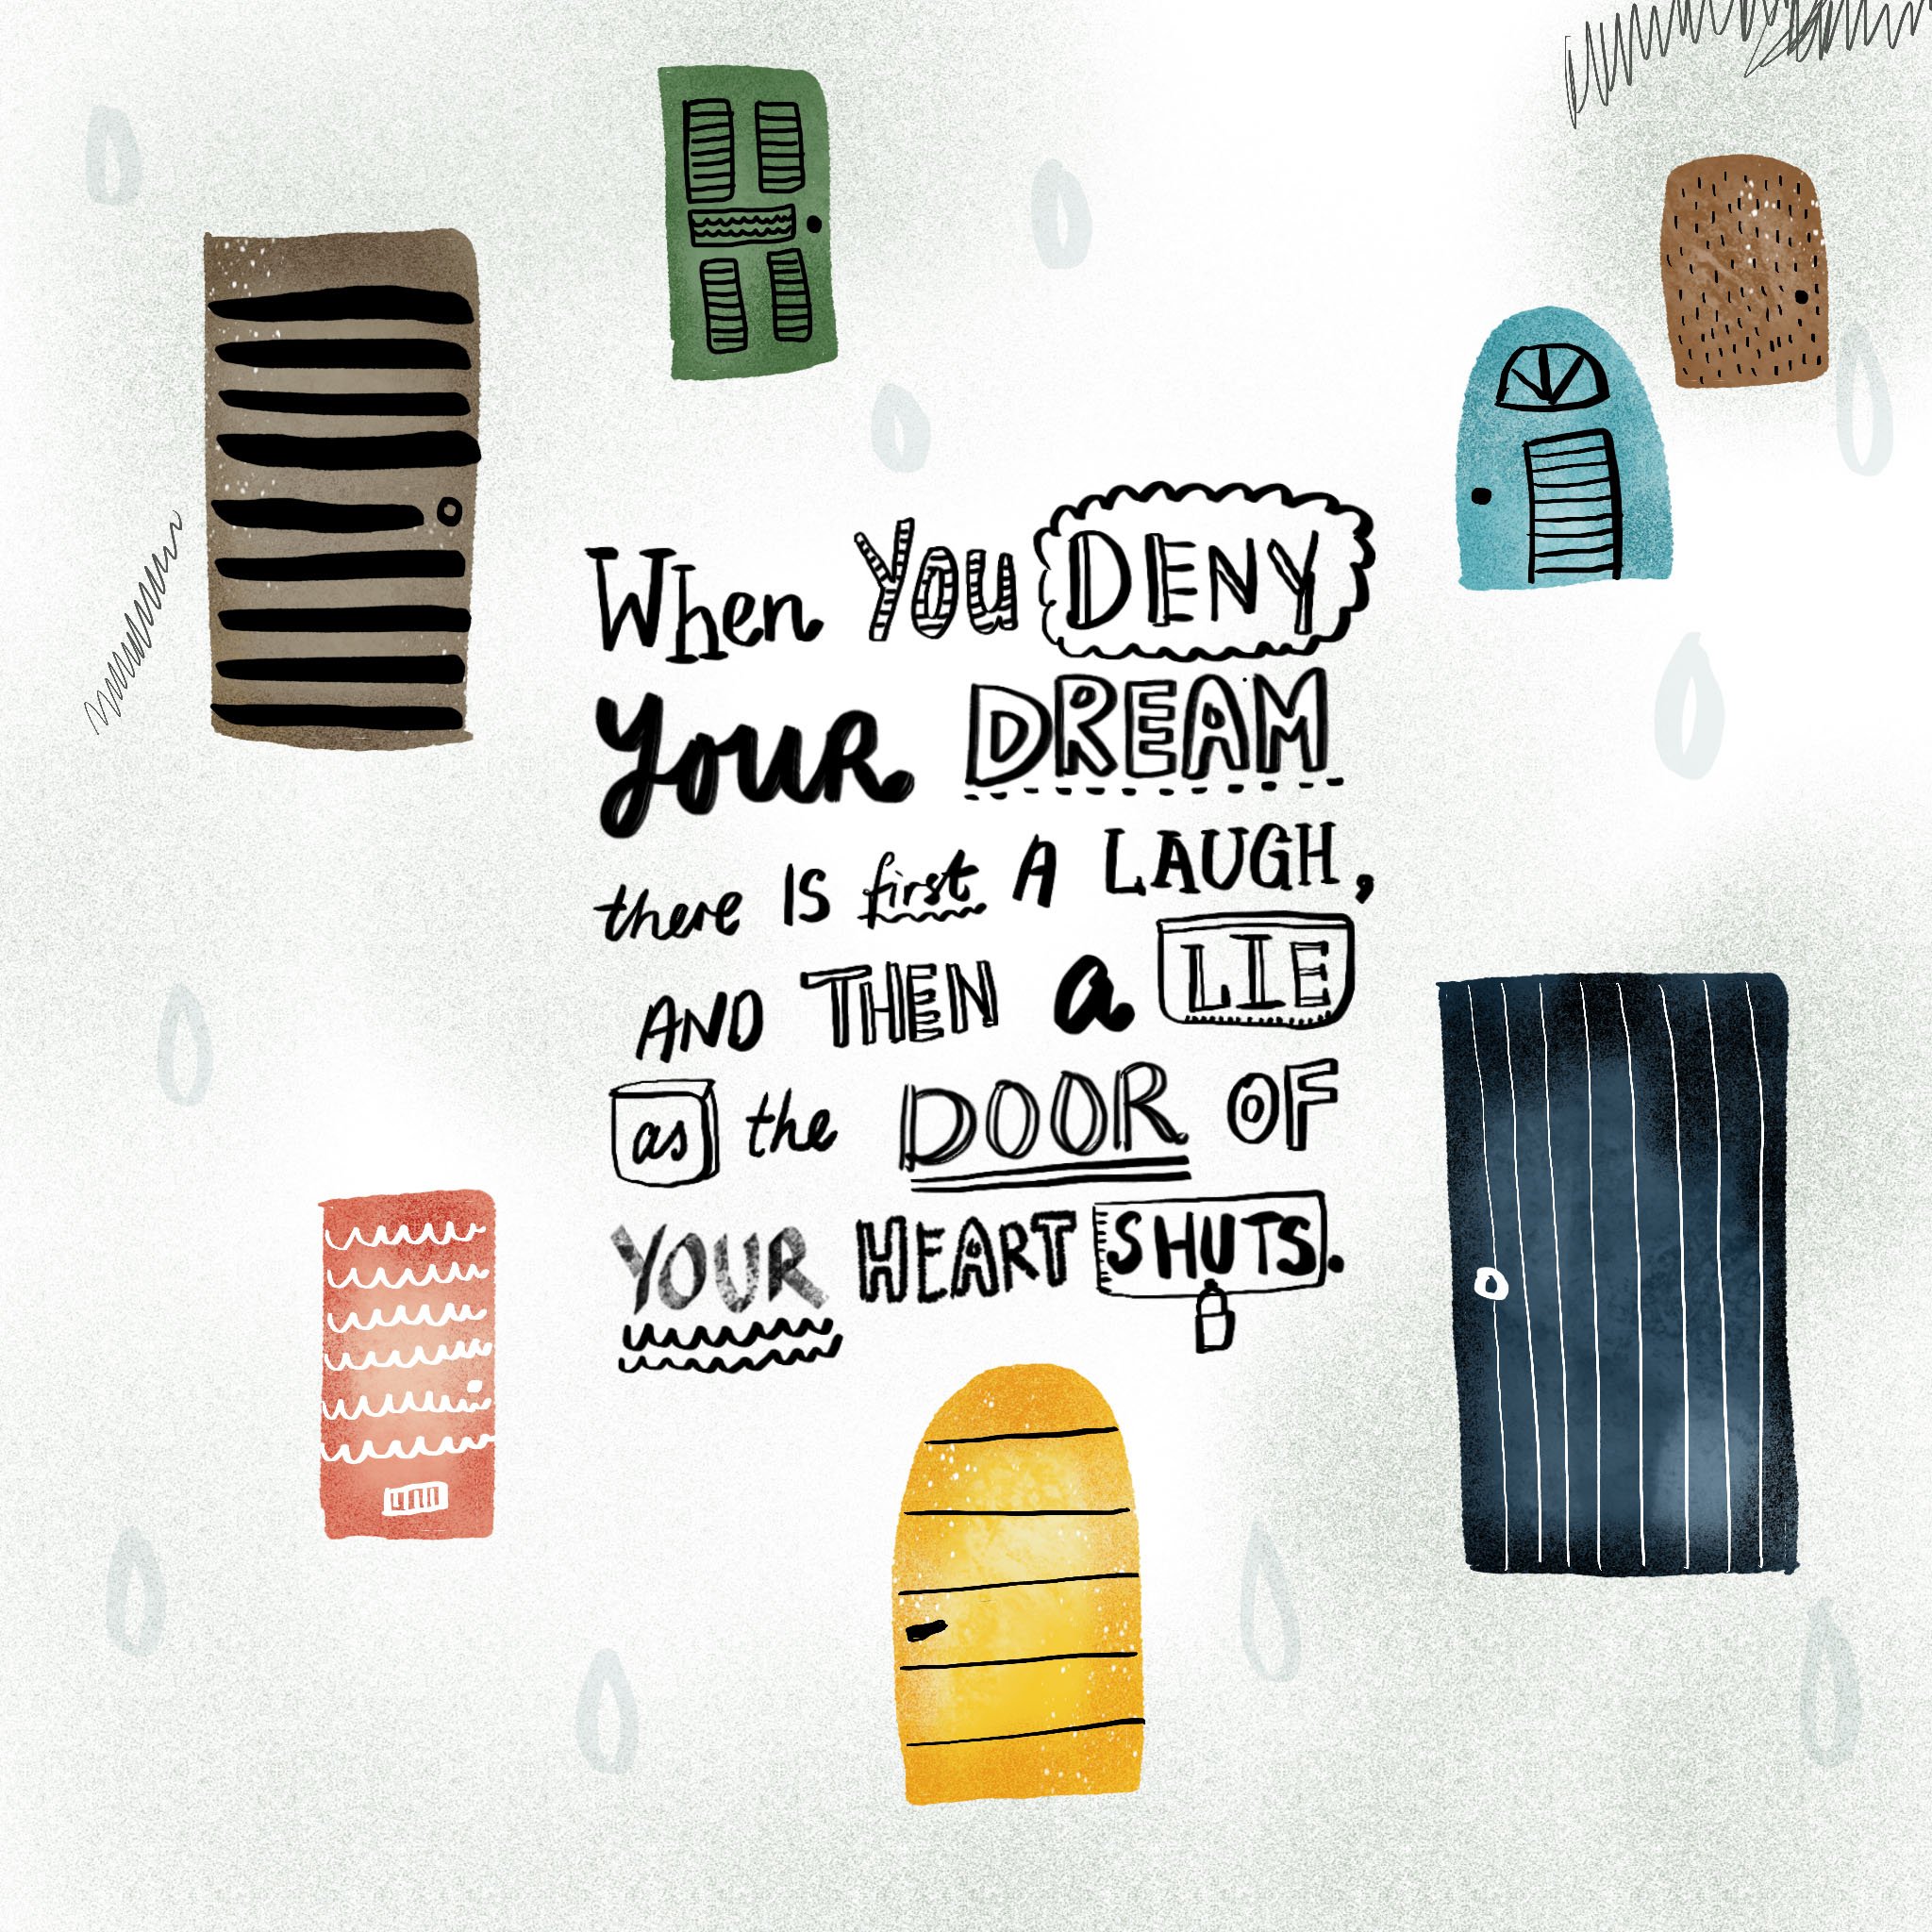 When You DENY
your DREAM
there IS first A LAUGH,
AND THEN a LIE
as the DOOR OF
YOUR HEART SHUTS.